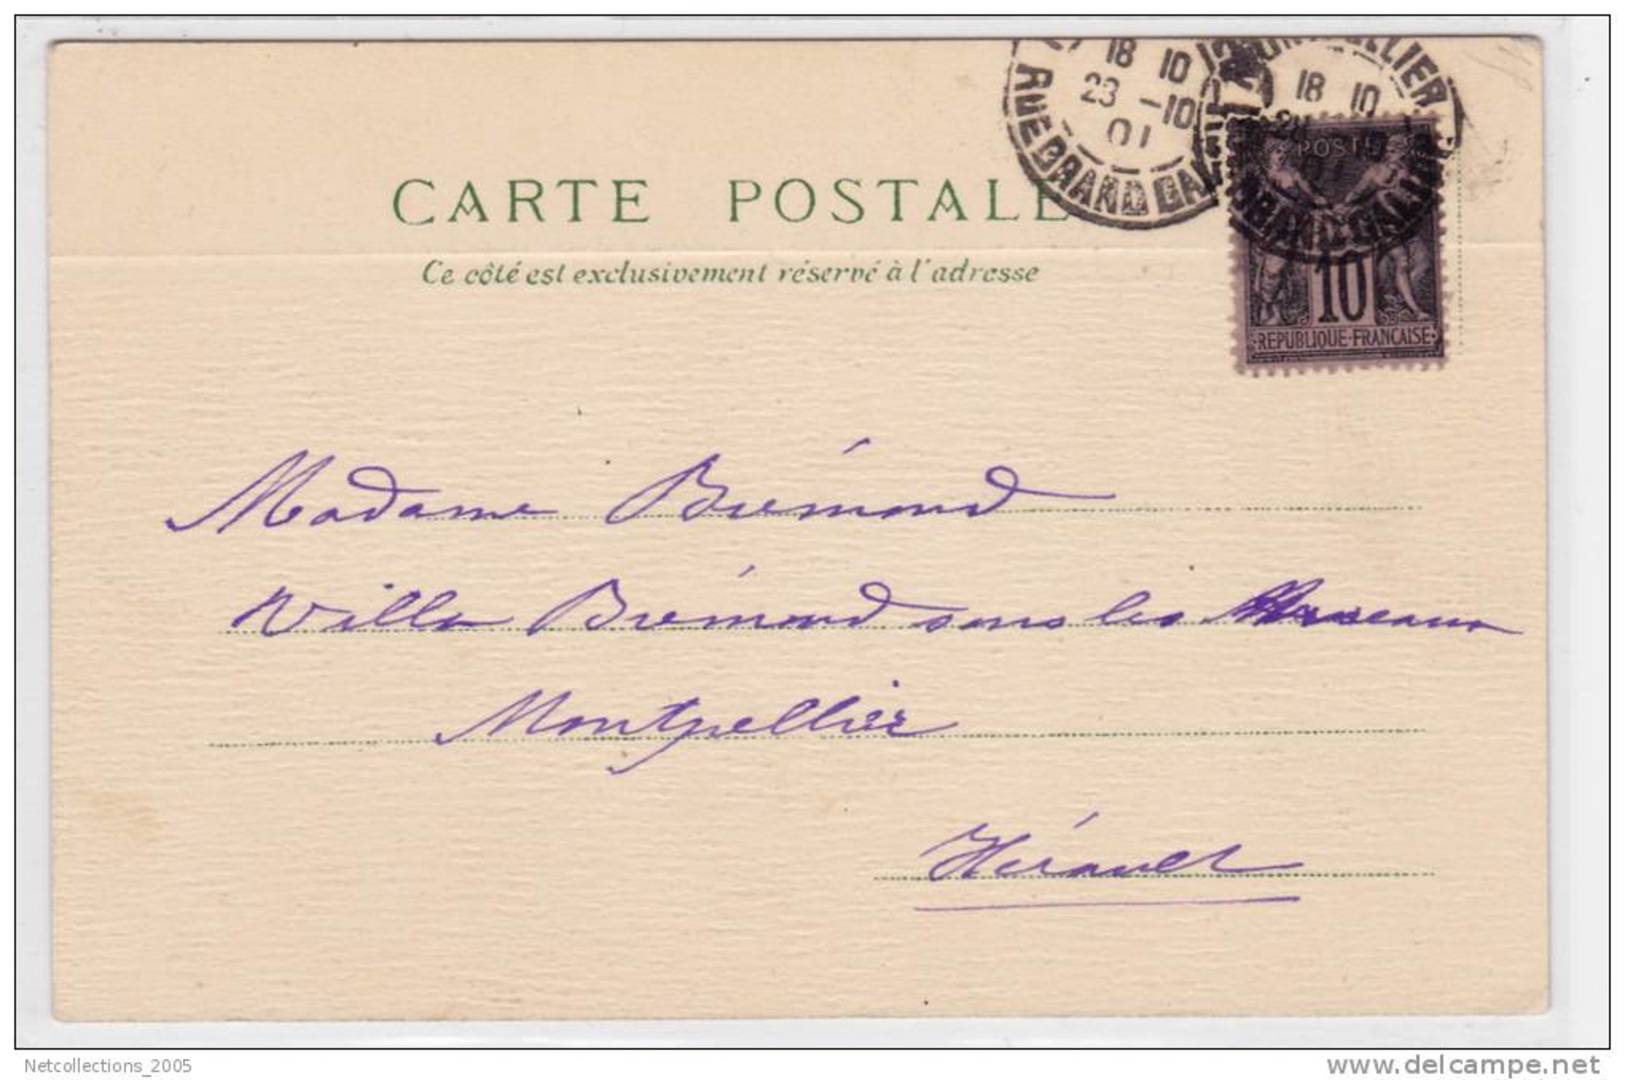 CARTE POSTALE
Ce côté est exclusivement réservé à l'adresse
18 10
23 -10
01
RUE GRAND GAL
MONTPELLIER
18 10
POSTE
10
REPUBLIQUE-FRANCAISE
Madame Brémond
Villa Brémond sous les Arceaux
Montpellier
Hérault
Netcollections_2005
www.delcampe.net